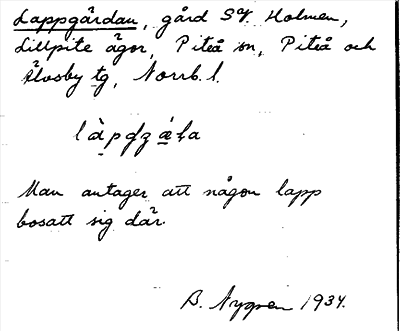 Lappgärdan, gård SV. Holmen,
Lillpite ägor, Piteå sn, Piteå och
Älvsby tg, Norrb. l.
Man antager att någon lapp
bosatt sig där.
B. Nygren 1934.